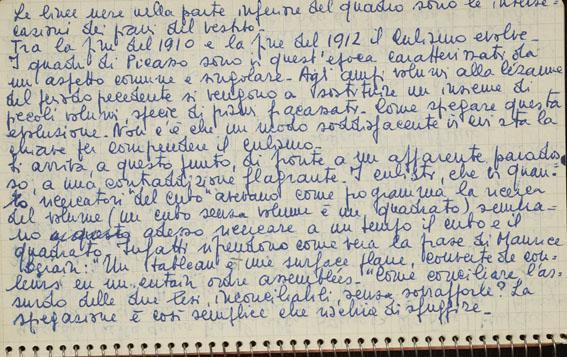 Le linee nere nella parte inferiore del quadro sono le interse-
cazioni dei piani del vestito.
Tra la fine del 1910 e la fine del 1912 il Cubismo evolve.
I quadri di Picasso sono in quest'epoca caratterizzati da
un aspetto comune e singolare. Agli ampi volumi alla Cézanne
del periodo precedente si vengono a sostituire un insieme di
piccoli volumi specie di piani fracassati. Come spiegare questa
esplosione. Non c'è che un modo soddisfacente in cui sta la
chiave per comprendere il cubismo.
Si arriva, a questo punto, di fronte a un apparente parados-
so, a una contraddizione flagrante. I cubisti, che in quan-
to ricercatori del cubo avevano come programma la ricerca
del volume (un cubo senza volume è un quadrato) sembra-
no adesso ricercare a un tempo il cubo e il
quadrato. Infatti riprendono come vera la frase di Maurice
Denis: "Un tableau è une surface plane, couverte de cou-
leurs en un certain ordre assemblées." Come conciliare l'as-
surdo delle due tesi, inconciliabili senza sopraffarle? La
spiegazione è così semplice che rischia di sfuggire.